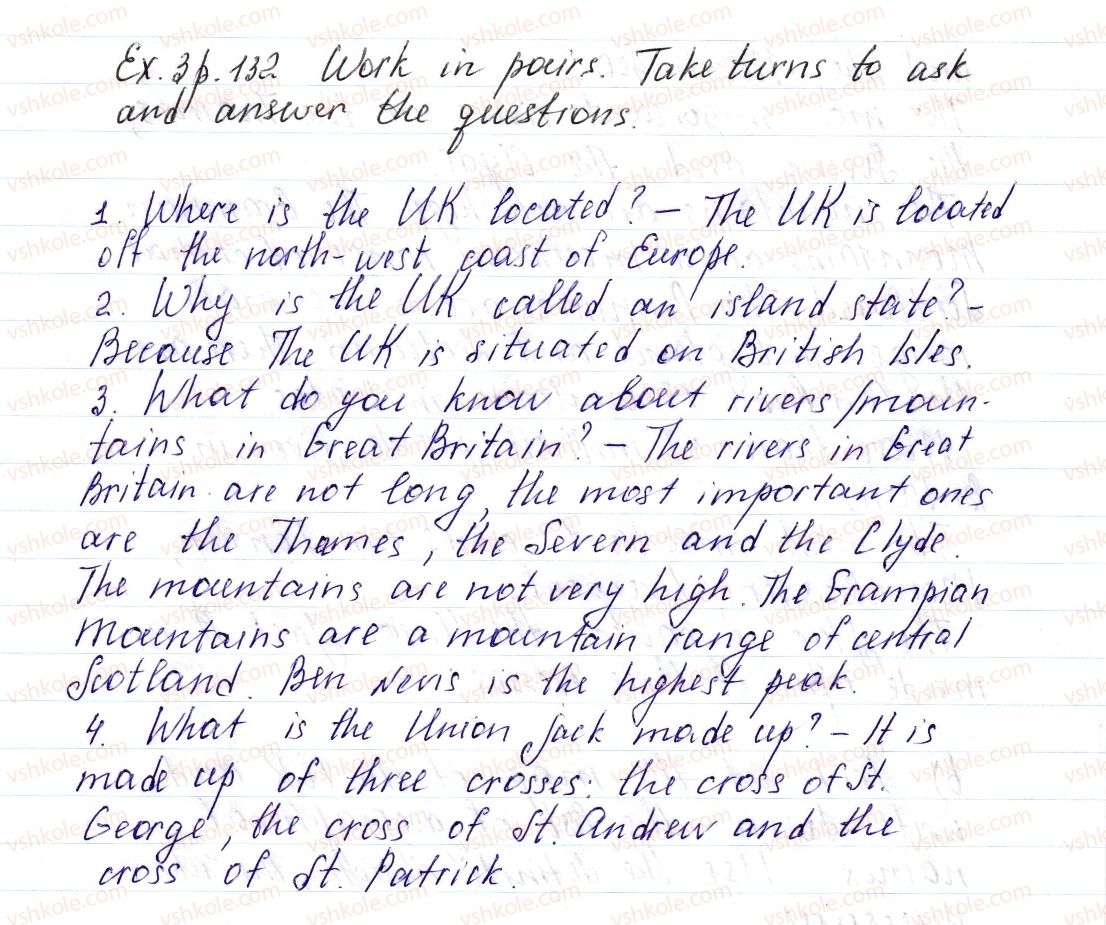 Ex. 3 p. 132 Work in pairs. Take turns to ask
and answer the questions.
1. Where is the UK located? – The UK is located
off the north-west coast of Europe.
2. Why is the UK called an island state? –
Because The UK is situated on British Isles.
3. What do you know about rivers/moun-
tains in Great Britain? – The rivers in Great
Britain are not long, the most important ones
are the Thames, the Severn and the Clyde.
The mountains are not very high. The Grampian
Mountains are a mountain range of central
Scotland. Ben Nevis is the highest peak.
4. What is the Union Jack made up? – It is
made up of three crosses: the cross of St.
George, the cross of St. Andrew and the
cross of St. Patrick.